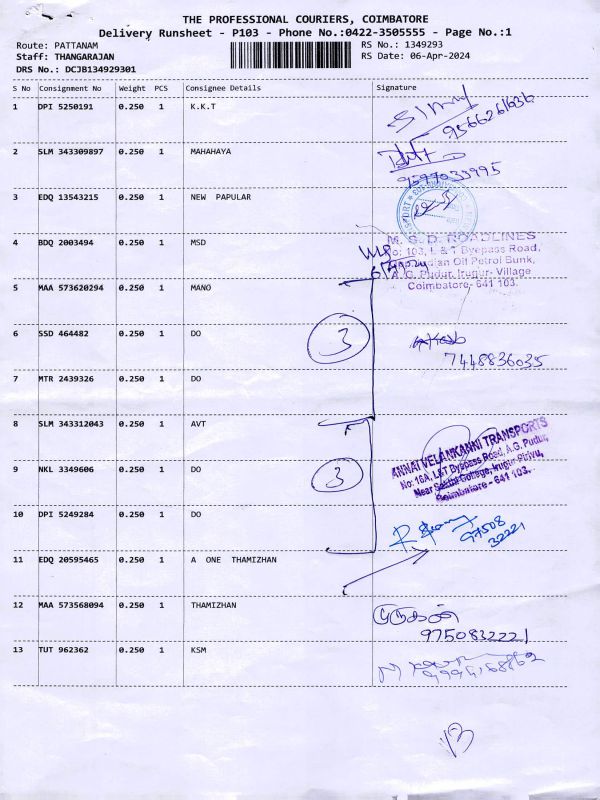 THE PROFESSIONAL COURIERS, COIMBATORE
Delivery Runsheet - P103 - Phone No.:0422-3505555 - Page No.:1
Route: PATTANAM RS No.: 1349293
Staff: THANGARAJAN RS Date: 06-Apr-2024
DRS No.: DCJB134929301
S No Consignment No Weight PCS Consignee Details Signature
1 DPI 5250191 0.250 1 K.K.T
9566261636
2 SLM 343309897 0.250 1 MAHAHAYA
9597033995
3 EDQ 13543215 0.250 1 NEW PAPULAR
4 BDQ 2003494 0.250 1 MSD
M. S. D. ROADLINES
No: 103, L & T Byepass Road,
Indian Oil Petrol Bunk,
A. G. Pudur, Irugur- Village
Coimbatore- 641 103.
5 MAA 573620294 0.250 1 MANO
6 SSD 464482 0.250 1 DO 3
7448836035
7 MTR 2439326 0.250 1 DO
8 SLM 343312043 0.250 1 AVT
ANNAI VELANKANNI TRANSPORTS
No: 16A, L&T Byepass Road, A.G. Pudur,
Near Sakthi College, Irugur Pirivu,
Coimbatore - 641 103.
9 NKL 3349606 0.250 1 DO 3
10 DPI 5249284 0.250 1 DO
97508
32221
11 EDQ 20595465 0.250 1 A ONE THAMIZHAN
12 MAA 573568094 0.250 1 THAMIZHAN
முருகன்
9750832221
13 TUT 962362 0.250 1 KSM
13